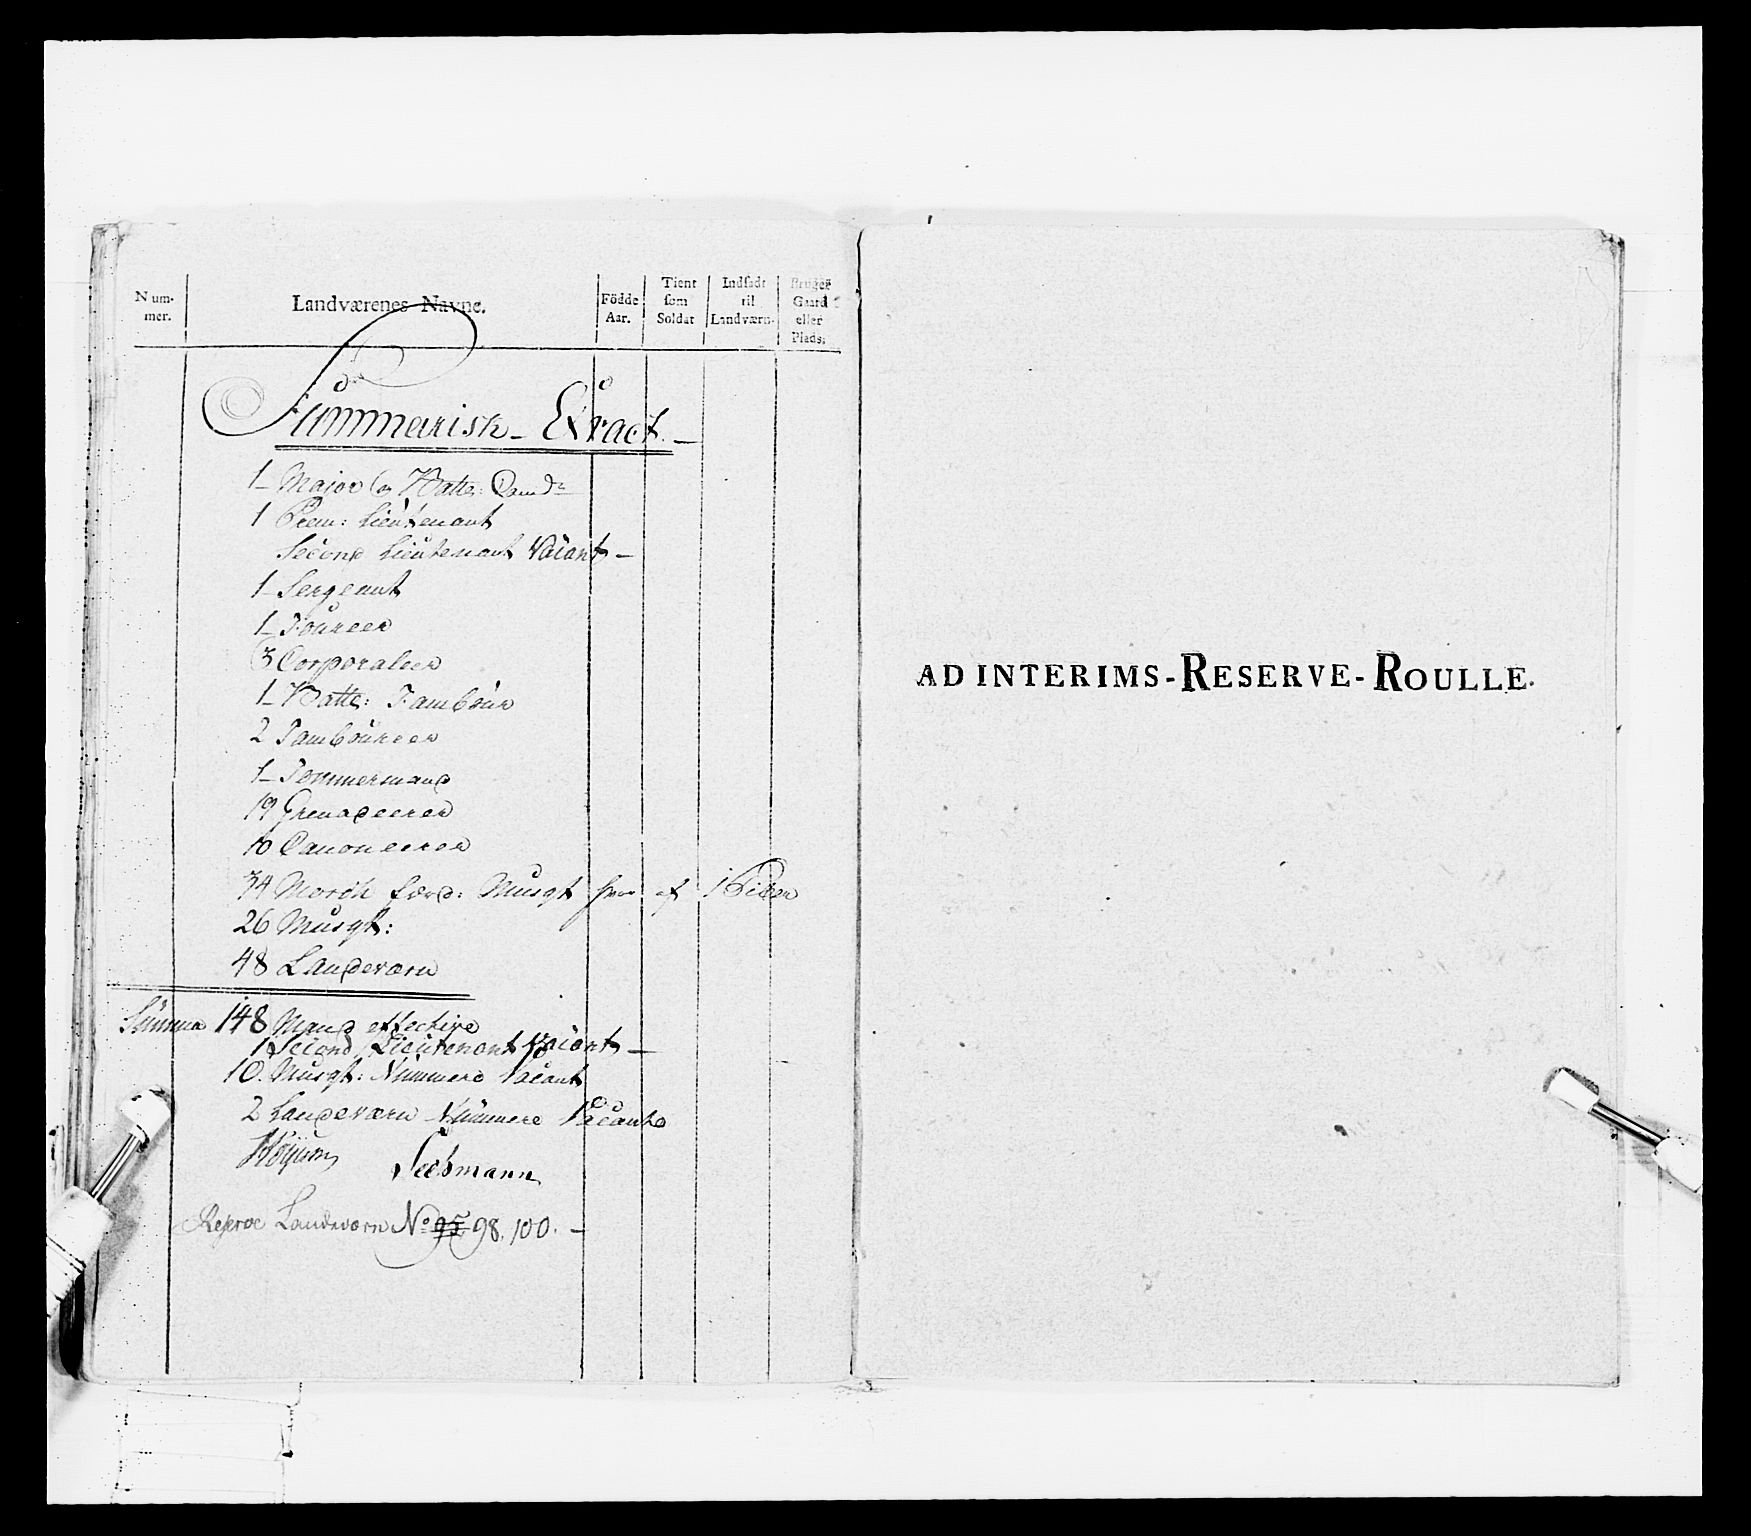 Num-
mer.
Landværenes Navne.
Födde
Aar.
Tient
som
Soldat
Indsadt
til
Landværn.
Bruger
Gaard
eller
Plads.
Summarisk Extract.
1 Major og Batts: Comdr
1 Prem: Lieutenant
Second Lieutenant Vacant
1 Sergeant
1 Foureer
3 Corporaleer
1 Batts: Tambour
2 Tamboureer
1 Tømmermand
19 Grenadeerer
10 Canoneerer
34 Morsk færd: Musqt hvor af 1 Piber
26 Musqt:
48 Landeværn
Summa 148 Mand effective
1 Second Lieutenant Vacant
10. Musqt: Nummere Vacant
2 Landeværn Nummere Vacante
Seebmann
Landeværn No 95 98. 100.
AD INTERIMS-RESERVE-ROULLE.